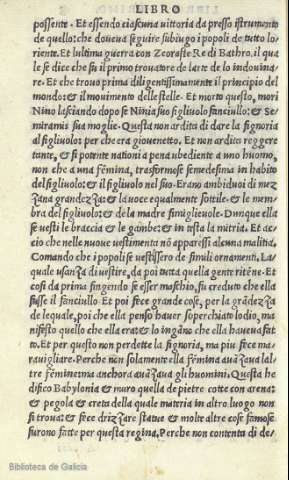 LIBRO
possente. Et essendo ciascuna vittoria da presso istrumento
de quello: che doueua seguire subiugo i popoli de tutto lo-
riente. Et lultima guerra con Zeoraste Re di Bathro. il qua
le se dice che fu il primo trouatore de larte de lo indouina-
re. Et che trouo prima diligentissimamente il principio del
mondo: & il mouimento delle stelle. Et morto questo, mori
Nino lasciando dopo se Ninia suo figliuolo fanciullo: & Se
miramis sua moglie. Questa non ardita di dare la signoria
al figliuolo: per che era giouenetto. Et non ardita reggere
tante, & si potente nationi a pena ubediente a uno huomo,
non che a una fēmina, trasformose semedesima in habito
del figliuolo: & il figliuolo nel suo. Erano ambiduoi di mez
zana grandezza: & la uoce equalmente sottile: & le mem-
bra del figliuolo: & de la madre simiglieuole. Dunque ella
se uesti le braccia & le gambe: & in testa la mitria. Et ac-
cio che nelle nuoue uestimenta nō apparissi alcuna malitia,
Comando che i popoli se uestissero de simili ornamenti. La-
quale usanza di uestire, da poi tutta quella gente ritēne. Et
cosi da prima fingendo se esser maschio, fu creduto che ella
fusse il fanciullo. Et poi fece grande cose, per la grādezza
de lequale, poi che ella penso hauer soperchiato lodio, ma-
nifesto quello che ella era: & lo ingāno che ella haueua fat-
to. Et per questo non perdette la signoria, ma piu fece ma-
rauigliare. Perche non solamente ella fēmina auāzaua lal-
tre fēmine: ma anchora auāzaua gli huomini. Questa he
difico Babylonia & muro quella de pietre cotte con arena:
& pegola & creta della quale materia in altro luogo non
si troua: & fece drizzare statue & molte altre cose famose
furono fatte per questa regina. Perche non contenta di de/
Biblioteca de Galicia